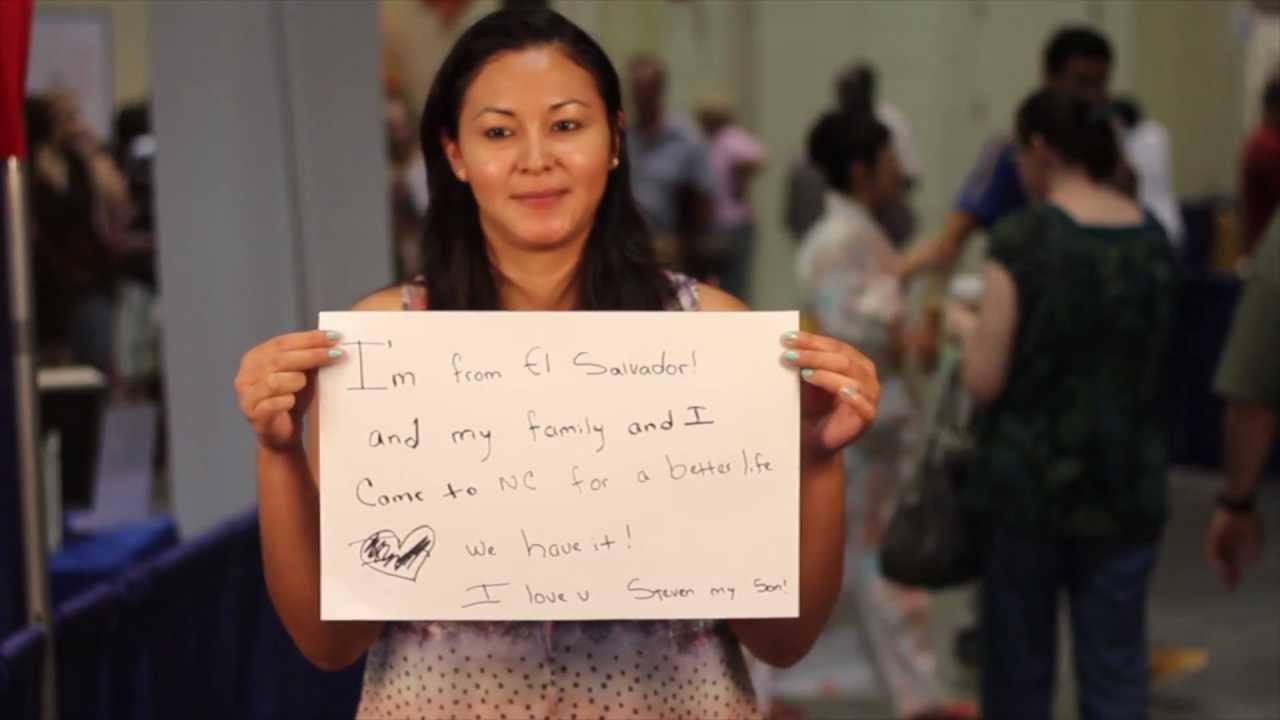 I'm from El Salvador!
and my family and I
Came to NC for a better life
we have it!
I love u Steven my Son!